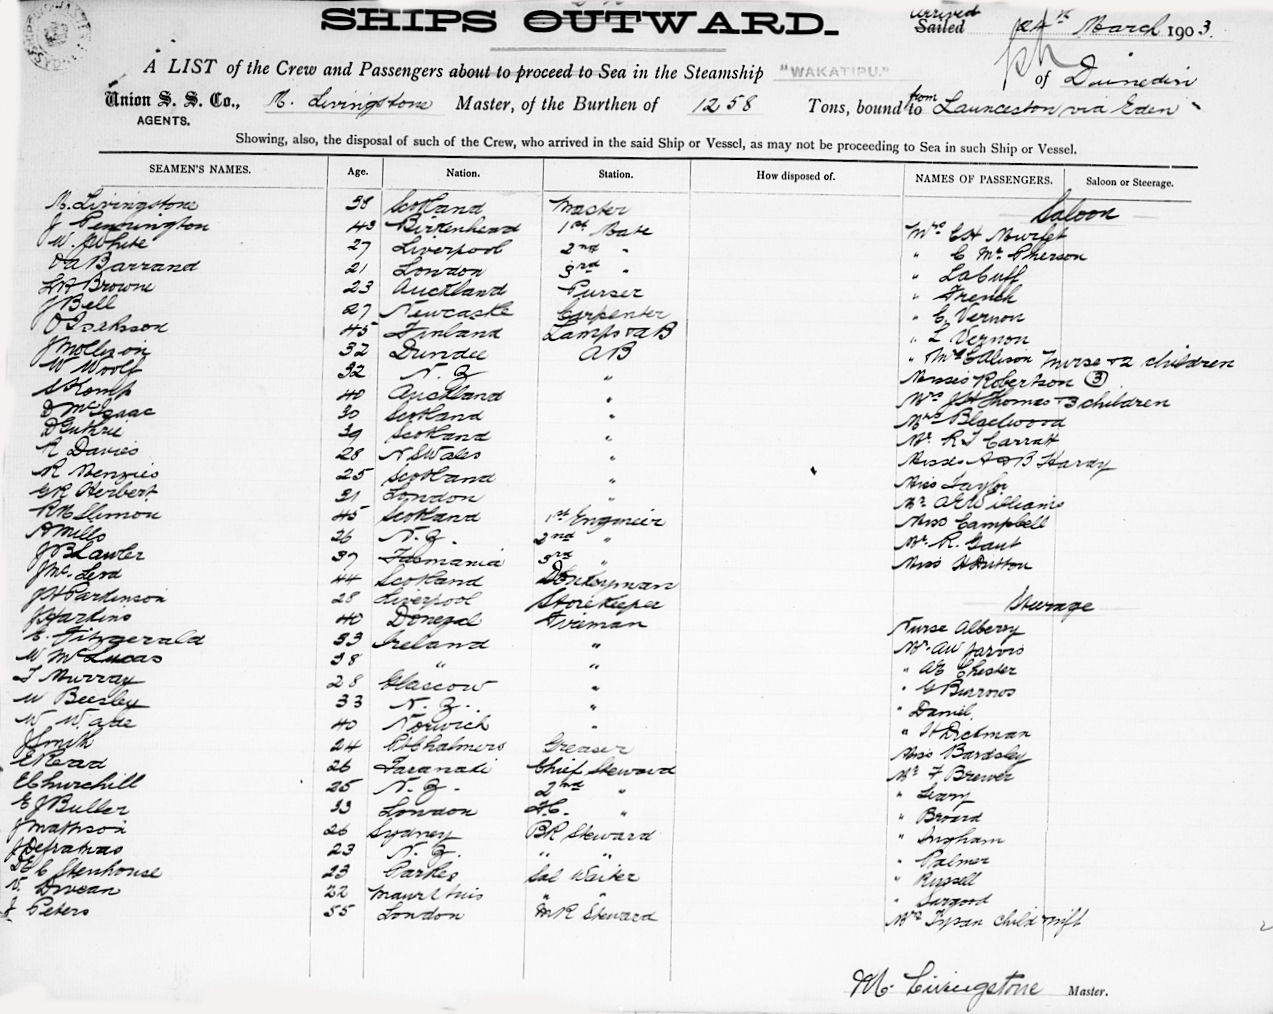 SHIPS OUTWARD.
Arrived
Sailed 24th March 1903.
A LIST of the Crew and Passengers about to proceed to Sea in the Steamship "WAKATIPU." of Dunedin
Union S. S. Co., M. Livingstone Master, of the Burthen of 1258 Tons, bound to from Launceston via Eden
AGENTS.
Showing, also, the disposal of such of the Crew, who arrived in the said Ship or Vessel, as may not be proceeding to Sea in such Ship or Vessel.
SEAMEN'S NAMES. Age. Nation. Station. How disposed of. NAMES OF PASSENGERS. Saloon or Steerage.
M. Livingstone 38 Scotland Master
J Pennington 43 Birkenhead 1st Mate
W. White 27 Liverpool 2nd "
Barrand 21 London 3rd "
Browne 23 Auckland Purser
J Bell 27 Newcastle Carpenter
O Isaksson 45 Finland Lamps & AB
J Mollison 32 Dundee AB
W Woolf 32 N. Z "
S Kemp 40 Auckland "
D McIsaac 30 Scotland "
D Guthrie 39 Scotland "
R Davies 28 N S Wales "
R Menzies 25 Scotland "
Herbert 31 London "
Slimon 45 Scotland 1st Engineer
A Mills 26 N. Z. 2nd "
J B Lawler 37 Tasmania 3rd "
J Mc 44 Scotland Donkeyman
J H Parkinson 28 Liverpool Storekeeper
J Harkins 40 Donegal Fireman
E. Fitzgerald 33 Ireland "
W McLucas 38 " "
T Murray 28 Glascow "
W Beesley 33 N. Z. "
W 40 Norwich "
J Smith 24 Pt Chalmers Greaser
E Read 26 Taranaki Chief Steward
E Churchill 25 N. Z. 2nd "
E J Buller 33 London F.C. "
J Mathson 26 Sydney BR Steward
J 23 N. Z. " "
Stenhouse 23 Parkes Sal Waiter
V. 22 Mauritius " "
J Peters 55 London MR Steward
Saloon
Mrs Murfet
" C McPherson
" LaCuff
" French
" C. Vernon
" L Vernon
" Mrs Nurse & 2 children
Misses Robertson (3)
Mrs J H Thomas & 3 children
Mrs Blackwood
Mr. R J Carratt
Misses A & B Hardy
Miss Taylor
Mr. A E Williams
Miss Campbell
Mr. R. Gaut
Miss Hutton
Steerage
Nurse Alberry
Mr. A W Jarvis
" A E Chester
" G Burrows
" Daniel
" H Dickman
Miss Bardsley
Mr F Brewer
" Leary
" Broad
" Ingham
" Palmer
" Russell
" Sargood
Mrs Tysan child & inft
M. Livingstone Master.